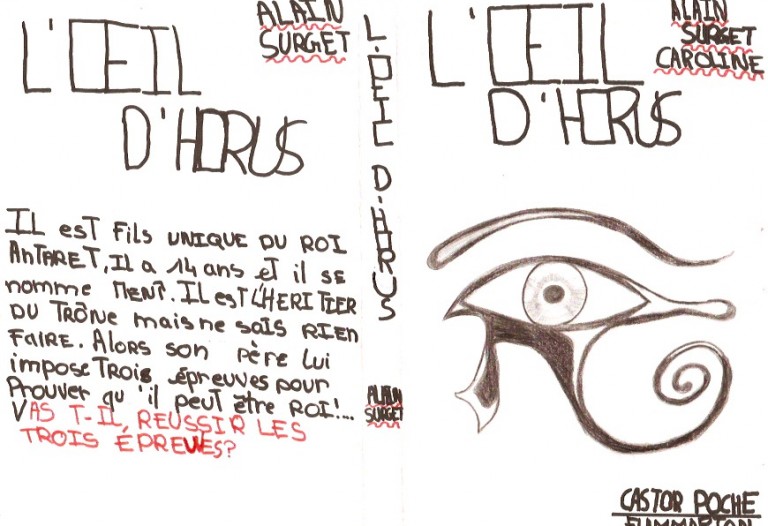 L'ŒIL
D'HORUS
ALAIN
SURGET
IL EST FILS UNIQUE DU ROI
ANTARET, IL a 14 ans et il se
nomme MENT. IL est L'HERITIER
DU TRÔNE mais ne sais RIEN
FAIRE. Alors son père Lui
impose Trois épreuves pour
Prouver qu'il peut être ROI!...
VAS T-IL, REUSSIR LES
TROIS ÉPREUVES?
L'ŒIL D'HORUS
ALAIN
SURGET
L'ŒIL
D'HORUS
ALAIN
SURGET
CAROLINE
CASTOR POCHE
FLAMMARION